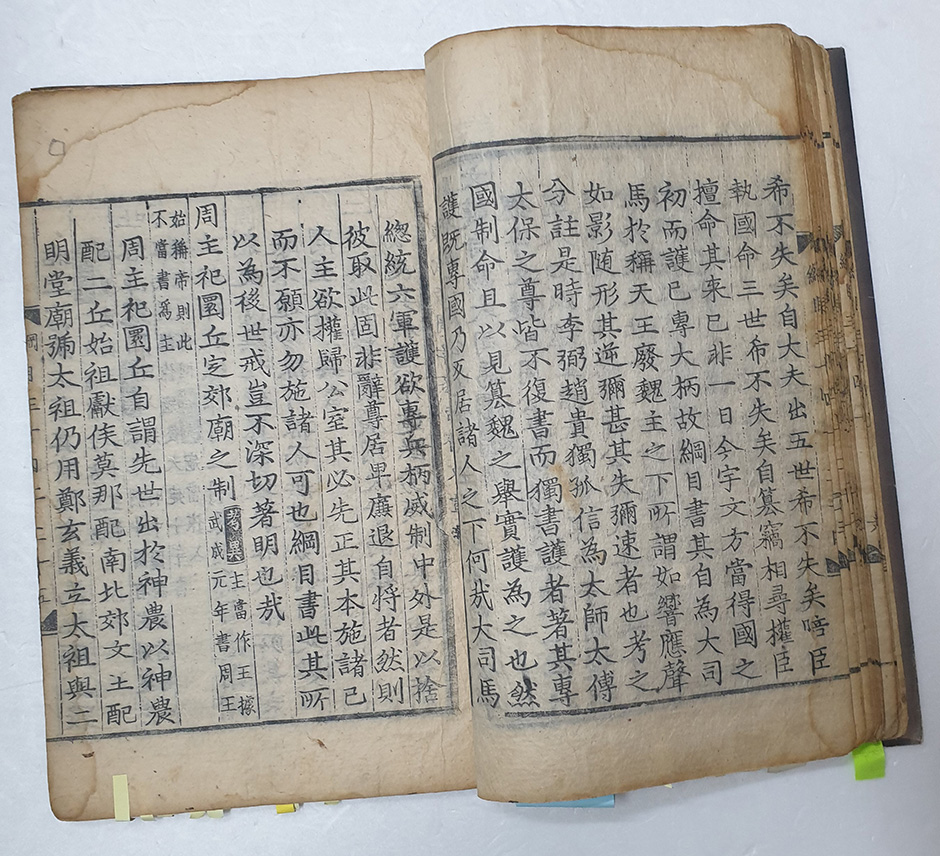 希不失矣自大夫出五世希不失矣陪臣
執國命三世希不失矣自簒竊相尋權臣
擅命其来已非一日今宇文方當得國之
初而護已專大柄故綱目書其自為大司
馬於稱天王廢魏主之下所謂如響應聲
如影随形其逆彌甚其失彌速者也考之
分註是時李弼趙貴獨孤信為太師太傅
太保之尊皆不復書而獨書護者著其專
國制命且以見簒魏之舉實護為之也然
護旣專國乃又居諸人之下何㢤大司馬
緫統六軍護欲專兵柄威制中外是以捨
彼取此固非辭尊居卑廉退自將者然則
人主欲權歸公室其必先正其本施諸己
而不願亦勿施諸人可也綱目書此其所
以為後世戒豈不深切著明也㢤
周主祀圜丘定郊廟之制考異主當作王據武成元年書周王
始稱帝則此不當書爲主
周主祀圜丘自謂先世出於神農以神農
配二丘始祖獻侯莫那配南北郊文王配
明堂廟號太祖仍用鄭玄義立太祖與二